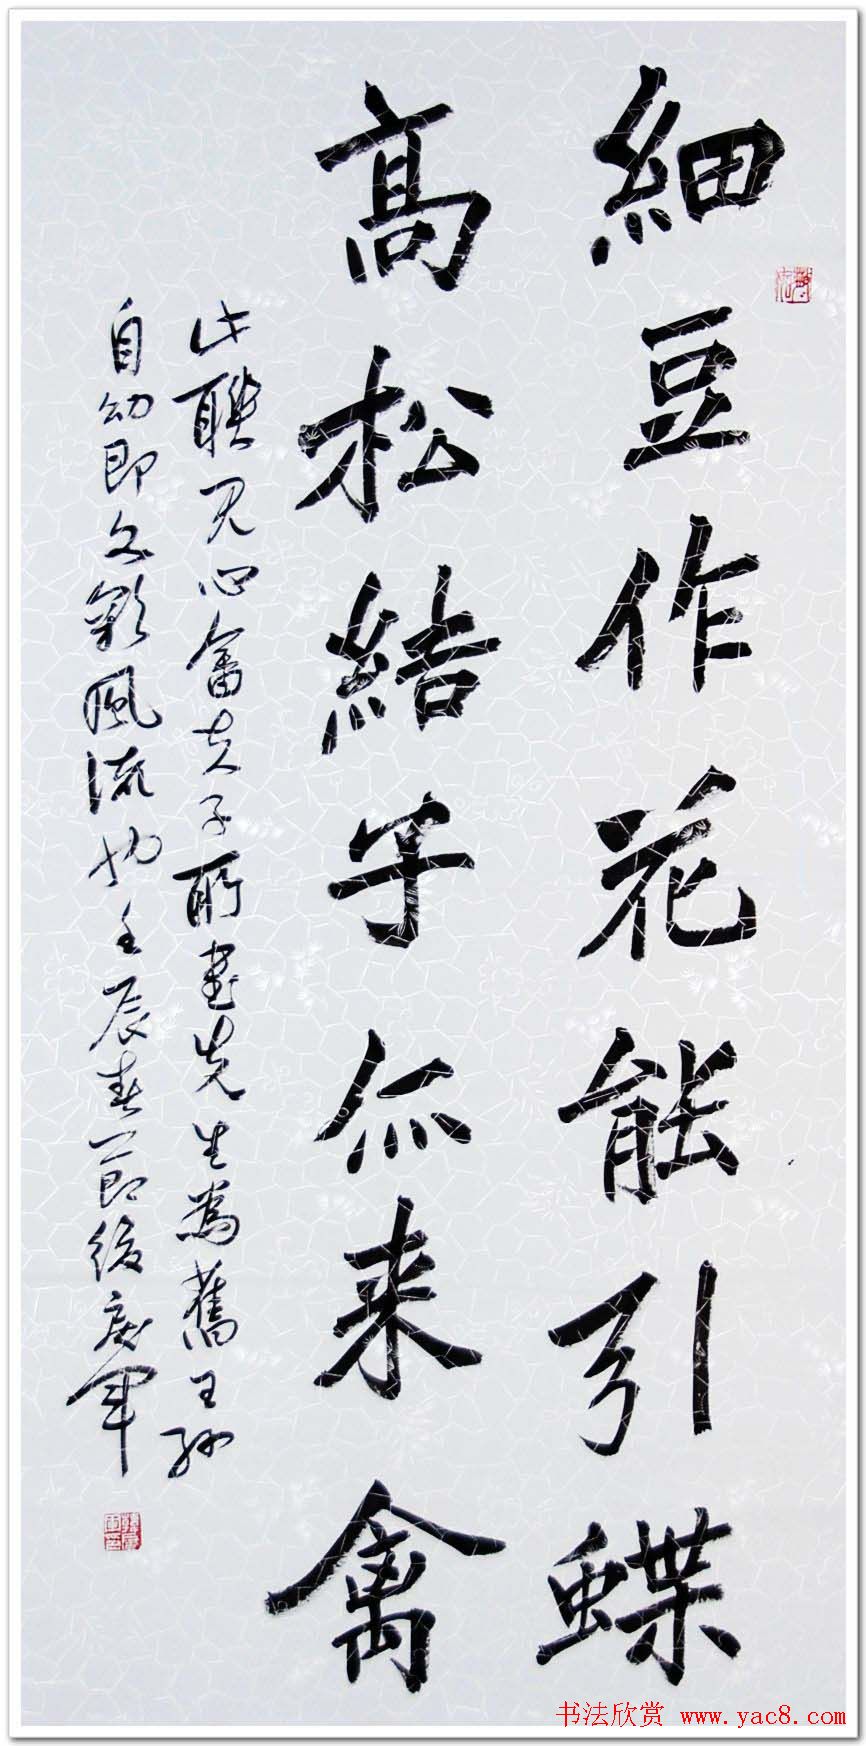 細豆作花能引蝶
高松結子亦来禽
此聯見心畬夫子所書先生為舊王孫
自幼即文彩風流也壬辰春節後广軍
书法欣赏 www.yac8.com